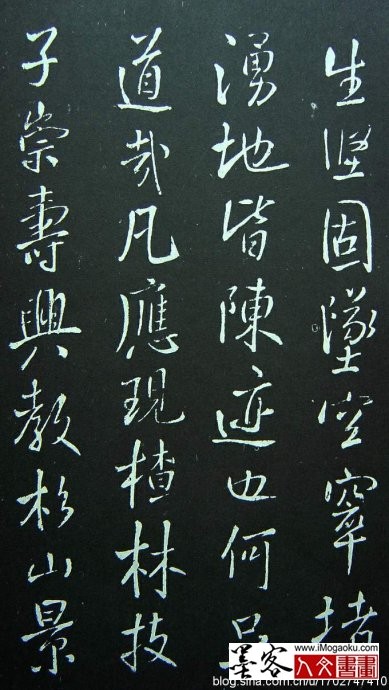 生堅固墜空窣堵
湧地皆陳迹也何足
道哉凡應現楂林技
子崇壽興教杉山景
墨客
www.iMogaoku.com
人文書畫
blog.sina.com.cn/u/1702747410